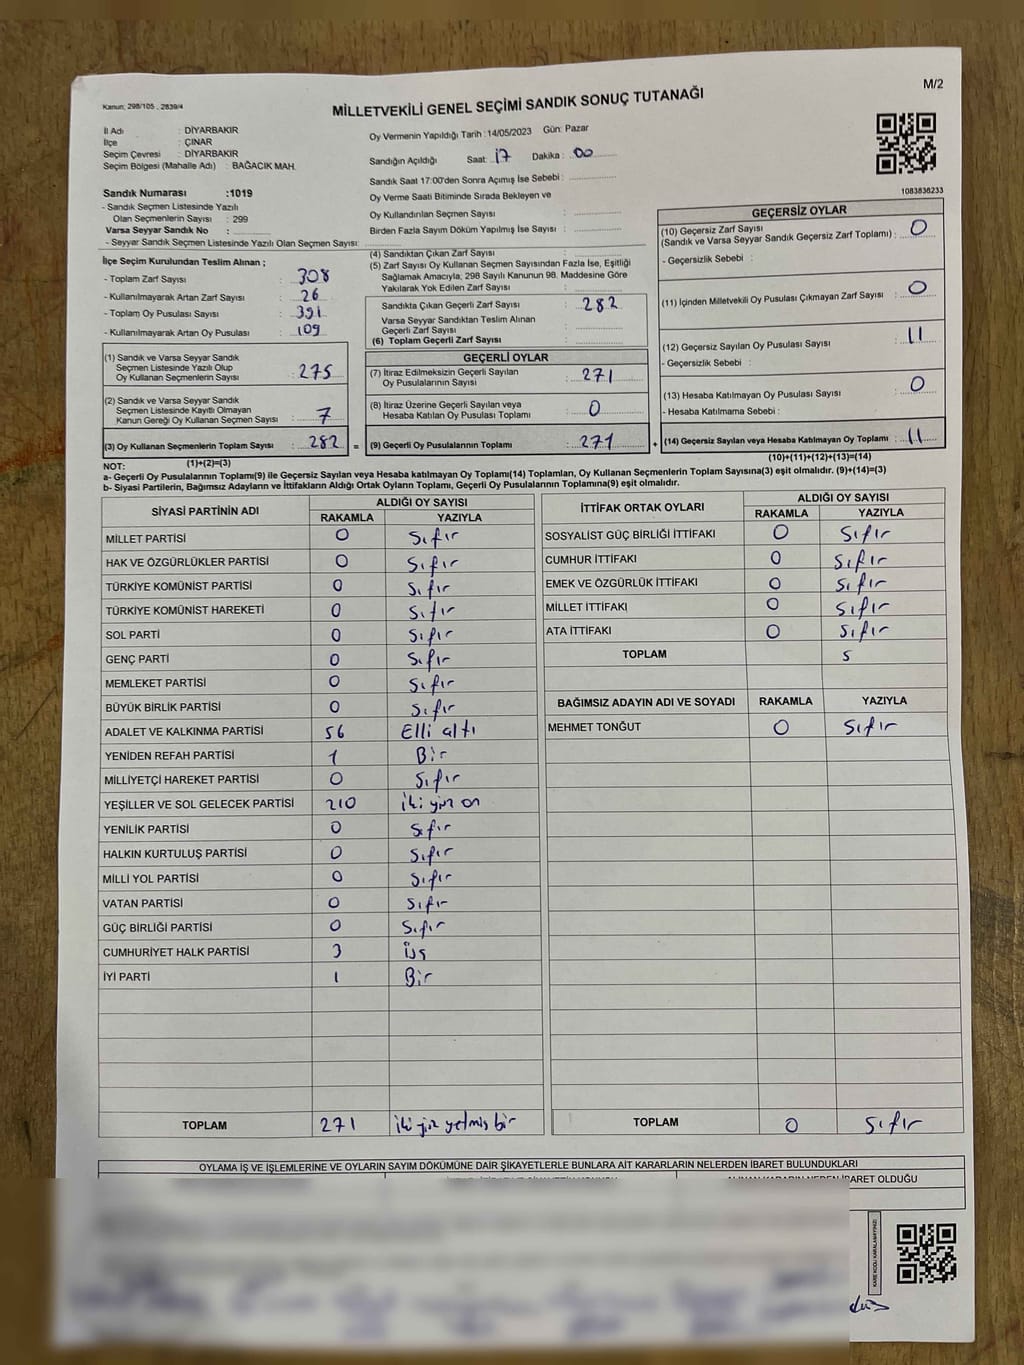 M/2
Kanun; 298/105 , 2839/4
MİLLETVEKİLİ GENEL SEÇİMİ SANDIK SONUÇ TUTANAĞI
İl Adı : DİYARBAKIR
İlçe : ÇINAR
Seçim Çevresi : DİYARBAKIR
Seçim Bölgesi (Mahalle Adı) : BAĞACIK MAH.
Sandık Numarası :1019
- Sandık Seçmen Listesinde Yazılı
Olan Seçmenlerin Sayısı : 299
Varsa Seyyar Sandık No :
- Seyyar Sandık Seçmen Listesinde Yazılı Olan Seçmen Sayısı:
Oy Vermenin Yapıldığı Tarih :14/05/2023 Gün: Pazar
Sandığın Açıldığı Saat: 17 Dakika : 00
Sandık Saat 17:00'den Sonra Açımış İse Sebebi :
Oy Verme Saati Bitiminde Sırada Bekleyen ve
Oy Kullandırılan Seçmen Sayısı :
Birden Fazla Sayım Döküm Yapılmış İse Sayısı :
1083836233
İlçe Seçim Kurulundan Teslim Alınan ;
- Toplam Zarf Sayısı : 308
- Kullanılmayarak Artan Zarf Sayısı : 26
- Toplam Oy Pusulası Sayısı : 391
- Kullanılmayarak Artan Oy Pusulası : 109
(1) Sandık ve Varsa Seyyar Sandık
Seçmen Listesinde Yazılı Olup
Oy Kullanan Seçmenlerin Sayısı : 275
(2) Sandık ve Varsa Seyyar Sandık
Seçmen Listesinde Kayıtlı Olmayan
Kanun Gereği Oy Kullanan Seçmen Sayısı : 7
(3) Oy Kullanan Seçmenlerin Toplam Sayısı : 282 =
(4) Sandıktan Çıkan Zarf Sayısı :
(5) Zarf Sayısı Oy Kullanan Seçmen Sayısından Fazla İse, Eşitliği
Sağlamak Amacıyla, 298 Sayılı Kanunun 98. Maddesine Göre
Yakılarak Yok Edilen Zarf Sayısı :
Sandıkta Çıkan Geçerli Zarf Sayısı : 282
Varsa Seyyar Sandıktan Teslim Alınan
Geçerli Zarf Sayısı :
(6) Toplam Geçerli Zarf Sayısı :
GEÇERLİ OYLAR
(7) İtiraz Edilmeksizin Geçerli Sayılan
Oy Pusulalarının Sayısı : 271
(8) İtiraz Üzerine Geçerli Sayılan veya
Hesaba Katılan Oy Pusulası Toplamı : 0
(9) Geçerli Oy Pusulalarının Toplamı : 271 +
GEÇERSİZ OYLAR
(10) Geçersiz Zarf Sayısı
(Sandık ve Varsa Seyyar Sandık Geçersiz Zarf Toplamı) : 0
- Geçersizlik Sebebi :
(11) İçinden Milletvekili Oy Pusulası Çıkmayan Zarf Sayısı : 0
(12) Geçersiz Sayılan Oy Pusulası Sayısı : 11
- Geçersizlik Sebebi :
(13) Hesaba Katılmayan Oy Pusulası Sayısı : 0
- Hesaba Katılmama Sebebi :
(14) Geçersiz Sayılan veya Hesaba Katılmayan Oy Toplamı : 11
NOT: (1)+(2)=(3) (10)+(11)+(12)+(13)=(14)
a- Geçerli Oy Pusulalarının Toplamı(9) ile Geçersiz Sayılan veya Hesaba katılmayan Oy Toplamı(14) Toplamları, Oy Kullanan Seçmenlerin Toplam Sayısına(3) eşit olmalıdır. (9)+(14)=(3)
b- Siyasi Partilerin, Bağımsız Adayların ve İttifakların Aldığı Ortak Oyların Toplamı, Geçerli Oy Pusulalarının Toplamına(9) eşit olmalıdır.
SİYASİ PARTİNİN ADI ALDIĞI OY SAYISI
RAKAMLA YAZIYLA
MİLLET PARTİSİ 0 Sıfır
HAK VE ÖZGÜRLÜKLER PARTİSİ 0 Sıfır
TÜRKİYE KOMÜNİST PARTİSİ 0 Sıfır
TÜRKİYE KOMÜNİST HAREKETİ 0 Sıfır
SOL PARTİ 0 Sıfır
GENÇ PARTİ 0 Sıfır
MEMLEKET PARTİSİ 0 Sıfır
BÜYÜK BİRLİK PARTİSİ 0 Sıfır
ADALET VE KALKINMA PARTİSİ 56 Elli altı
YENİDEN REFAH PARTİSİ 1 Bir
MİLLİYETÇİ HAREKET PARTİSİ 0 Sıfır
YEŞİLLER VE SOL GELECEK PARTİSİ 210 iki yüz on
YENİLİK PARTİSİ 0 Sıfır
HALKIN KURTULUŞ PARTİSİ 0 Sıfır
MİLLİ YOL PARTİSİ 0 Sıfır
VATAN PARTİSİ 0 Sıfır
GÜÇ BİRLİĞİ PARTİSİ 0 Sıfır
CUMHURİYET HALK PARTİSİ 3 üç
İYİ PARTİ 1 Bir
TOPLAM 271 iki yüz yetmiş bir
İTTİFAK ORTAK OYLARI ALDIĞI OY SAYISI
RAKAMLA YAZIYLA
SOSYALİST GÜÇ BİRLİĞİ İTTİFAKI 0 Sıfır
CUMHUR İTTİFAKI 0 Sıfır
EMEK VE ÖZGÜRLÜK İTTİFAKI 0 Sıfır
MİLLET İTTİFAKI 0 Sıfır
ATA İTTİFAKI 0 Sıfır
TOPLAM S
BAĞIMSIZ ADAYIN ADI VE SOYADI RAKAMLA YAZIYLA
MEHMET TONĞUT 0 Sıfır
TOPLAM 0 Sıfır
OYLAMA İŞ VE İŞLEMLERİNE VE OYLARIN SAYIM DÖKÜMÜNE DAİR ŞİKAYETLERLE BUNLARA AİT KARARLARIN NELERDEN İBARET BULUNDUKLARI
ALINAN KARARIN NEDEN İBARET OLDUĞU
KARE KODU KARALAMAYINIZ!